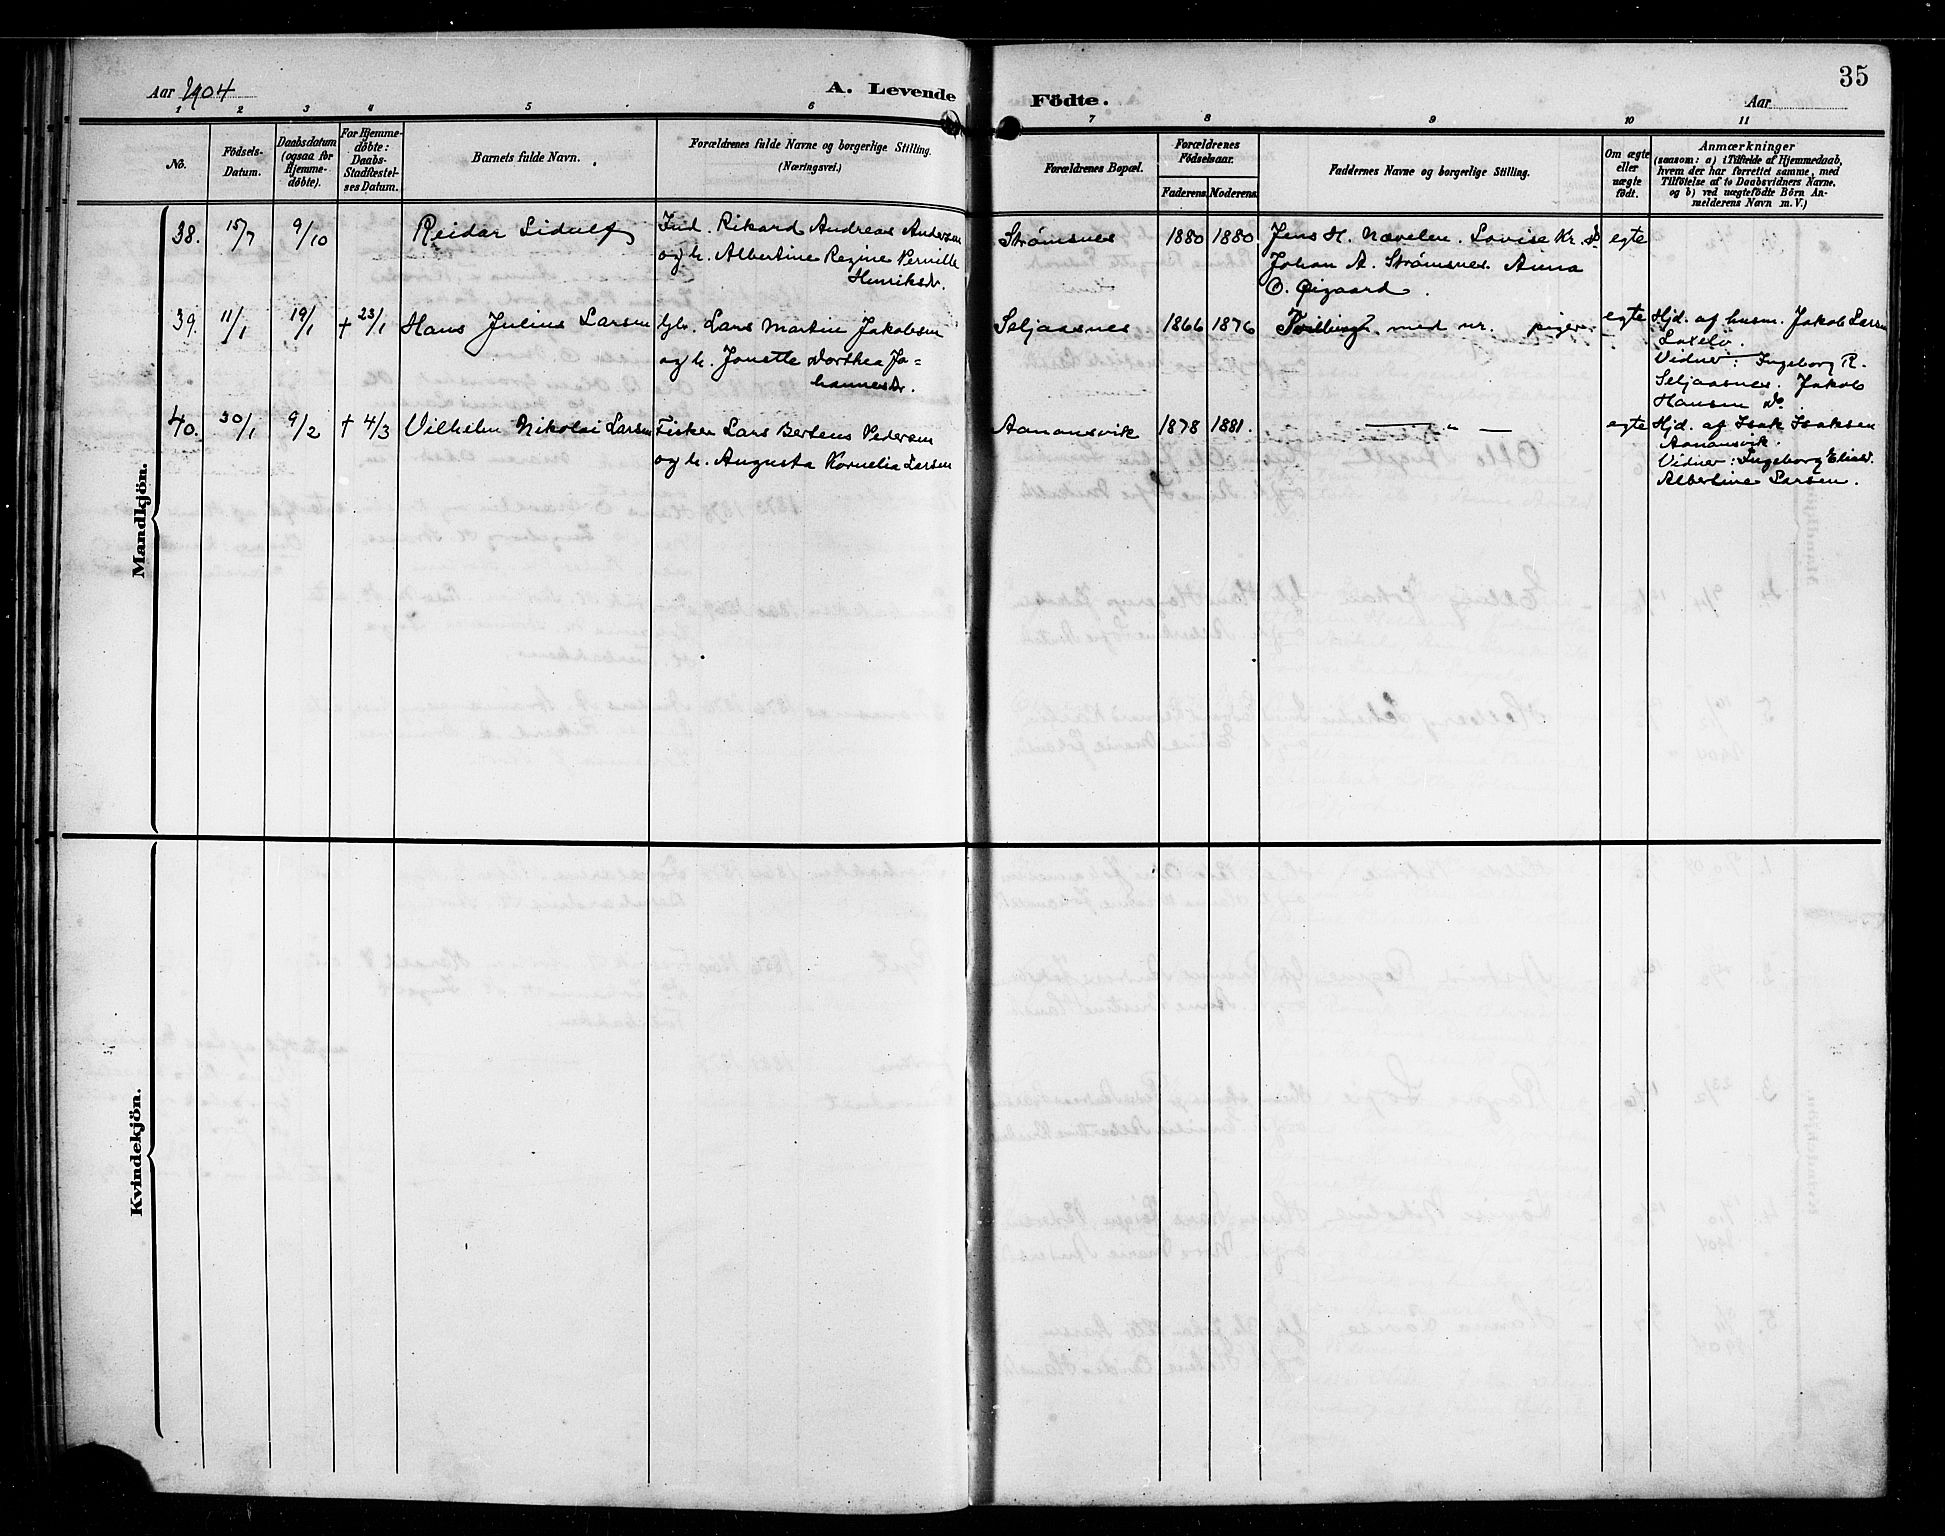 35
Aar 1904
A. Levende Födte.
Aar
1 2 3 4 5 6 7 8 9 10 11
No.
Födsels-
Datum.
Daabsdatum
(ogsaa for
Hjemme-
døbte).
For Hjemme-
döbte:
Daabs-
Stadfæstel-
ses Datum.
Barnets fulde Navn.
Forældrenes fulde Navne og borgerlige Stilling.
(Næringsvei.)
Forældrenes Bopæl.
Forældrenes
Födselsaar.
Faderens. Moderens.
Faddernes Navne og borgerlige Stilling.
Om ægte
eller
uægte
födt.
Anmærkninger
(saasom: a) i Tilfælde af Hjemmedaab,
hvem der har forrettet samme, med
Tilföielse af to Daabsvidners Navne,
og b) ved uægtefödte Börn An-
melderens Navn m. V.)
Mandkjön.
38. 15/7 9/10 Reidar Sidulf
Ind. Rikard Andreas Andersen
og h. Albertine Regine Pernille
Henriksdr.
Strømsnes 1880 1880
Jens H. Nævelen. Lovise Kr. 
Johan A. Strømsnes. Anna
O. Øigaard.
egte
39. 11/1 19/1 + 23/1 Hans Julius Larsen
Gbr. Lars Martin Jakobsen
og h. Jonette Dorthea Jo-
hannesdr.
Seljaasnes 1866 1876 Tvilling med nr. pigerne
egte
Hjd. af husm. Jakob Larsen
Laxelv.
Vidner: Ingeborg R.
Seljaasnes. Jakob
Hansen do.
40. 30/1 9/2 + 4/3 Vilhelm Nikolai Larsen
Fisker Lars Bertens Pedersen
og h. Augusta Kornelia Larsen
Aanansvik 1878 1881. — " —
egte
Hjd. af Isak Isaksen
Aanansvik.
Vidner: Ingeborg Eliasdr.
Albertine Larsen.
Kvindekjön.